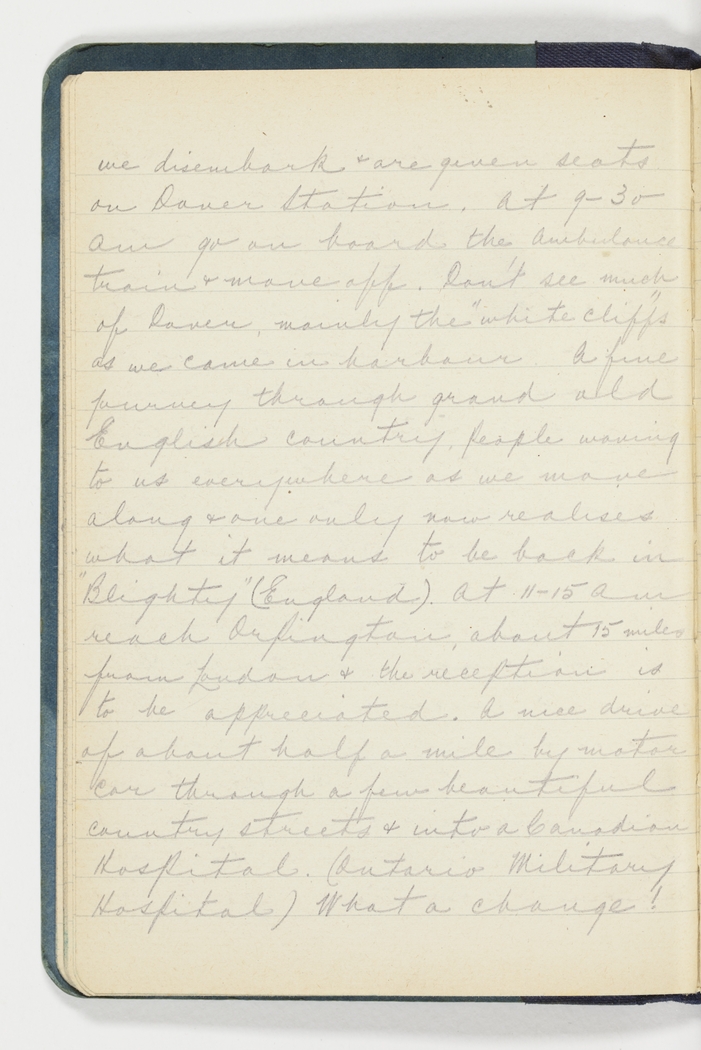 we disembark & are given seats
on Dover Station. At 9-30
am go on board the Ambulance
train & move off. Don't see much
of Dover, mainly the "white cliffs"
as we came in harbour. A fine
journey through grand old
English country, people waving
to us everywhere as we move
along & one only now realises
what it means to be back in
"Blighty" (England). At 11-15 am
reach Orpington, about 15 miles
from London & the reception is
to be appreciated. A nice drive
of about half a mile by motor
car through a few beautiful
country streets & into a Canadian
Hospital. (Ontario Military
Hospital) What a change!